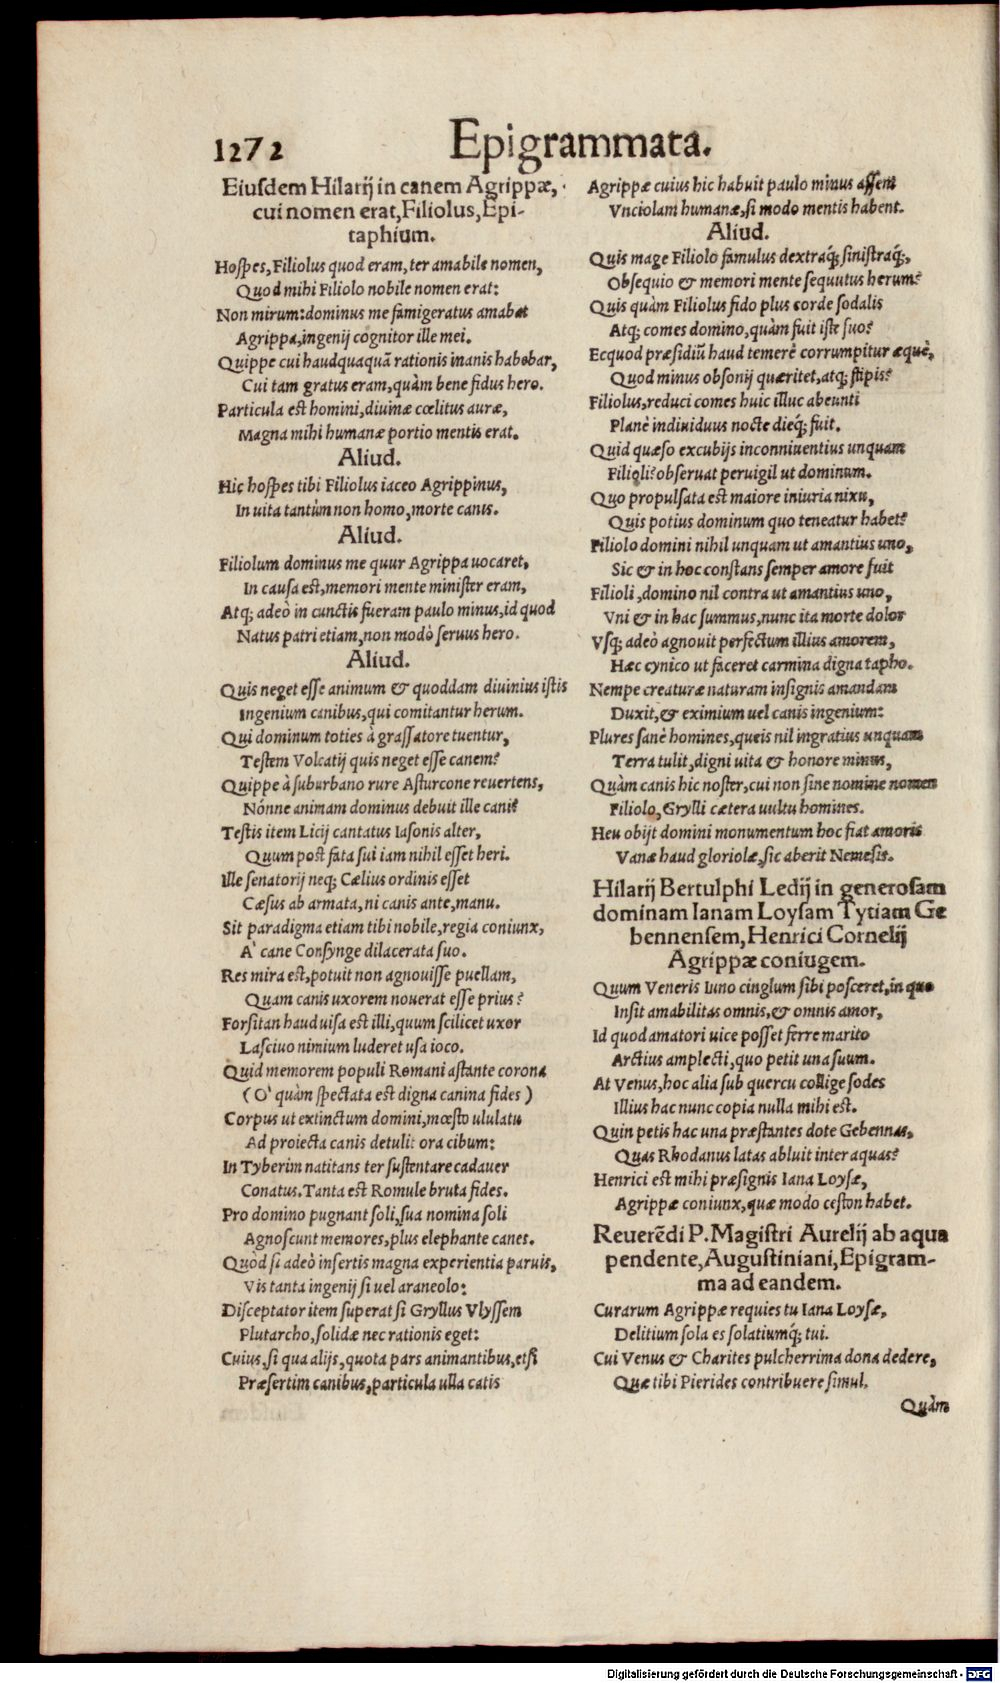 1272
Epigrammata.
Eiusdem Hilarij in canem Agrippæ,
cui nomen erat, Filiolus, Epi-
taphium.
Hospes, Filiolus quod eram, ter amabile nomen,
Quod mihi Filiolo nobile nomen erat:
Non mirum: dominus me famigeratus amabat
Agrippa, ingenij cognitor ille mei.
Quippe cui haudquaquã rationis inanis habebar,
Cui tam gratus eram, quàm bene fidus hero.
Particula est homini, diuinæ cœlitus auræ,
Magna mihi humanæ portio mentis erat.
Aliud.
Hic hospes tibi Filiolus iaceo Agrippinus,
In uita tantùm non homo, morte canis.
Aliud.
Filiolum dominus me quur Agrippa uocaret,
In causa est, memori mente minister eram,
Atq; adeò in cunctis fueram paulo minus, id quod
Natus patri etiam, non modò seruus hero.
Aliud.
Quis neget esse animum & quoddam diuinius istis
Ingenium canibus, qui comitantur herum.
Qui dominum toties à grassatore tuentur,
Testem Volcatij quis neget esse canem?
Quippe à suburbano rure Asturcone reuertens,
Nónne animam dominus debuit ille cani?
Testis item Licij cantatus Iasonis alter,
Quum post fata sui iam nihil esset heri.
Ille senatorij neq; Cælius ordinis esset
Cæsus ab armata, ni canis ante, manu.
Sit paradigma etiam tibi nobile, regia coniunx,
A' cane Consynge dilacerata suo.
Res mira est, potuit non agnouisse puellam,
Quam canis uxorem nouerat esse prius?
Forsitan haud uisa est illi, quum scilicet uxor
Lasciuo nimium luderet usa ioco.
Quid memorem populi Romani astante corona
(O' quàm spectata est digna canina fides)
Corpus ut extinctum domini, mœsto ululatu
Ad proiecta canis detulit ora cibum:
In Tyberim natitans ter sustentare cadauer
Conatus. Tanta est Romule bruta fides.
Pro domino pugnant soli, sua nomina soli
Agnoscunt memores, plus elephante canes.
Quòd si adeò insertis magna experientia paruis,
Vis tanta ingenij si uel araneolo:
Disceptator item superat si Gryllus Vlyssem
Plutarcho, solidæ nec rationis eget:
Cuius, si qua alijs, quota pars animantibus, etsi
Præsertim canibus, particula ulla catis
Agrippæ cuius hic habuit paulo minus assem
Vnciolam humanæ, si modo mentis habent.
Aliud.
Quis mage Filiolo famulus dextraq́; sinistraq́;,
Obsequio & memori mente sequutus herum?
Quis quàm Filiolus fido plus corde sodalis
Atq; comes domino, quàm fuit iste suo?
Ecquod præsidiũ haud temerè corrumpitur æquè,
Quod minus obsonij quæritet, atq; stipis?
Filiolus, reduci comes huic illuc abeunti
Planè indiuiduus nocte dieq́; fuit.
Quid quæso excubijs inconniuentius unquam
Filioli? obseruat peruigil ut dominum.
Quo propulsata est maiore iniuria nixu,
Quis potius dominum quo teneatur habet?
Filiolo domini nihil unquam ut amantius uno,
Sic & in hoc constans semper amore fuit
Filioli, domino nil contra ut amantius uno,
Vni & in hac summus, nunc ita morte dolor
Vsq; adeò agnouit perfectum illius amorem,
Hæc cynico ut faceret carmina digna tapho.
Nempe creaturæ naturam insignis amandam
Duxit, & eximium uel canis ingenium:
Plures sanè homines, queis nil ingratius unquam
Terra tulit, digni uita & honore minus,
Quàm canis hic noster, cui non sine nomine nomen
Filiolo, Grylli cætera uultu homines.
Heu obijt domini monumentum hoc fiat amoris
Vanæ haud gloriolæ, sic aberit Nemesis.
Hilarij Bertulphi Ledij in generosam
dominam Ianam Loysam Tytiam Ge
bennensem, Henrici Cornelij
Agrippæ coniugem.
Quum Veneris Iuno cinglum sibi posceret, in quo
Insit amabilitas omnis, & omnis amor,
Id quod amatori uice posset ferre marito
Arctius amplecti, quo petit una suum.
At Venus, hoc alia sub quercu collige sodes
Illius hac nunc copia nulla mihi est.
Quin petis hac una præstantes dote Gebennas,
Quas Rhodanus latas abluit inter aquas?
Henrici est mihi præsignis Iana Loysæ,
Agrippæ coniunx, quæ modo ceston habet.
Reuerẽdi P. Magistri Aurelij ab aqua
pendente, Augustiniani, Epigram-
ma ad eandem.
Curarum Agrippæ requies tu Iana Loysæ,
Delitium sola es solatiumq́; tui.
Cui Venus & Charites pulcherrima dona dedere,
Quæ tibi Pierides contribuere simul.
Quàm
Digitalisierung gefördert durch die Deutsche Forschungsgemeinschaft - DFG